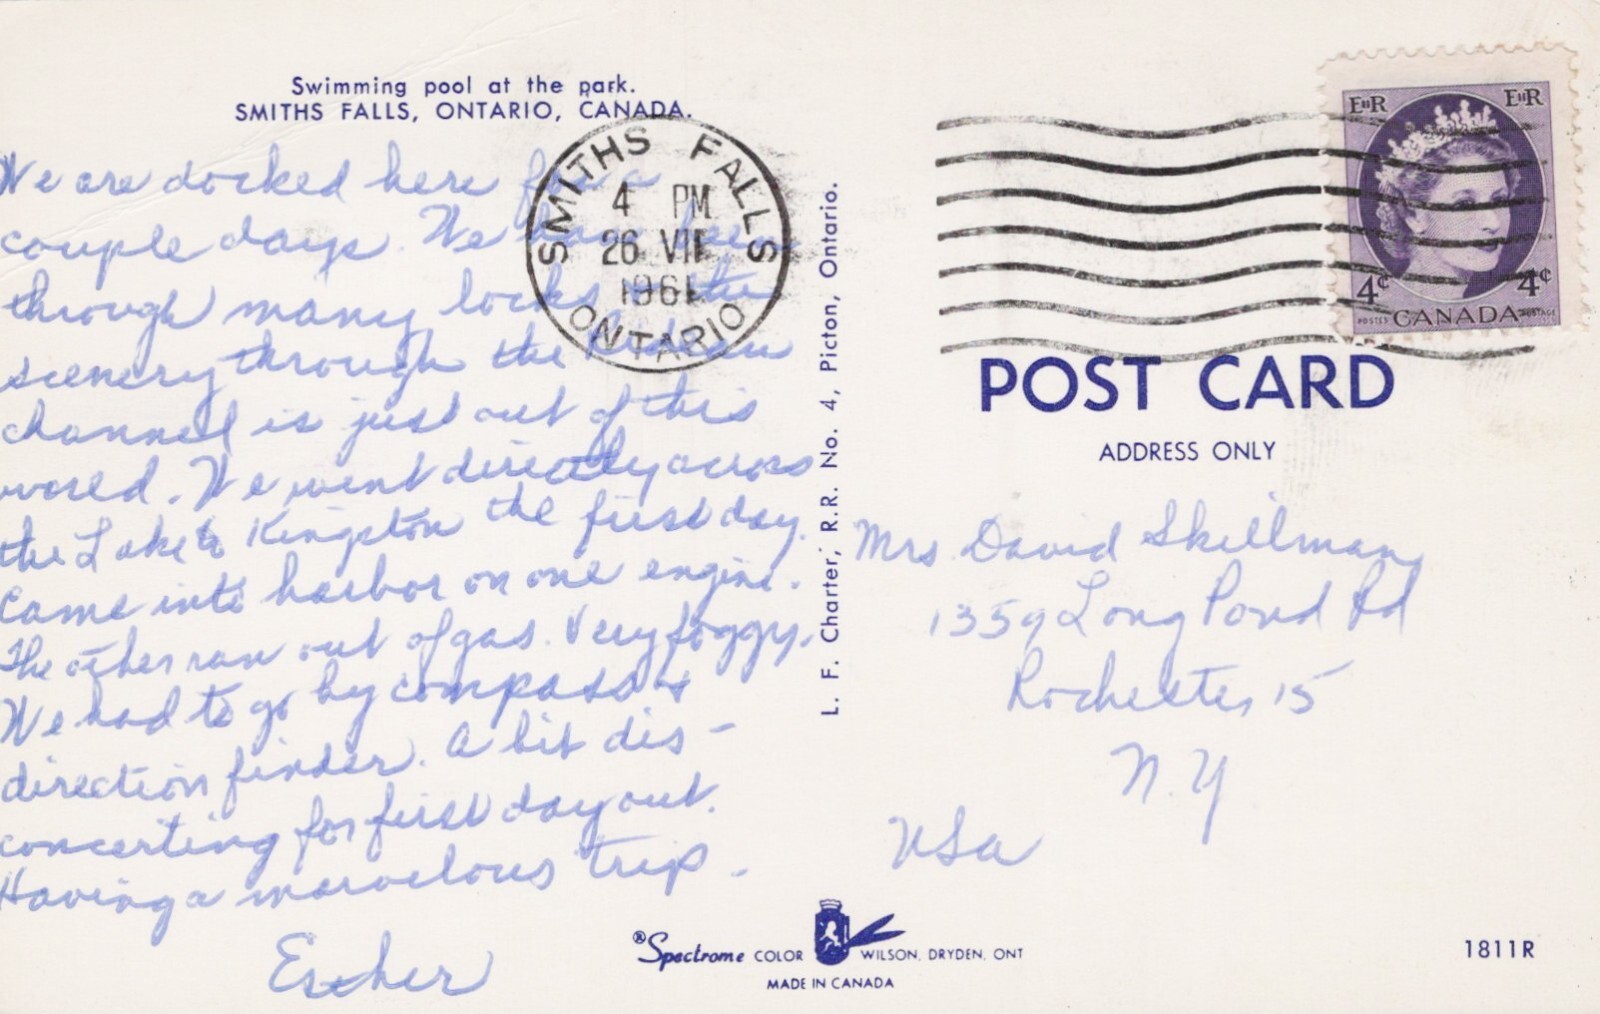 Swimming pool at the park.
SMITHS FALLS, ONTARIO, CANADA.
We are docked here for a
couple days. We have been
through many locks & the
scenery through the Rideau
channel is just out of this
world. We went directly across
the Lake to Kingston the first day.
Came into harbor on one engine.
The other ran out of gas. Very foggy.
We had to go by compass &
direction finder. A bit dis-
concerting for first day out.
Having a marvelous trip.
Esther
SMITHS FALLS
4 PM
26 VII
1961
ONTARIO
L. F. Charter, R.R. No. 4, Picton, Ontario.
EIIR EIIR
4c 4c
POSTES CANADA POSTAGE
POST CARD
ADDRESS ONLY
Mrs David Skillman
1359 Long Pond Rd
Rochester 15
N.Y
USA
®Spectrome COLOR WILSON, DRYDEN, ONT
MADE IN CANADA
1811R